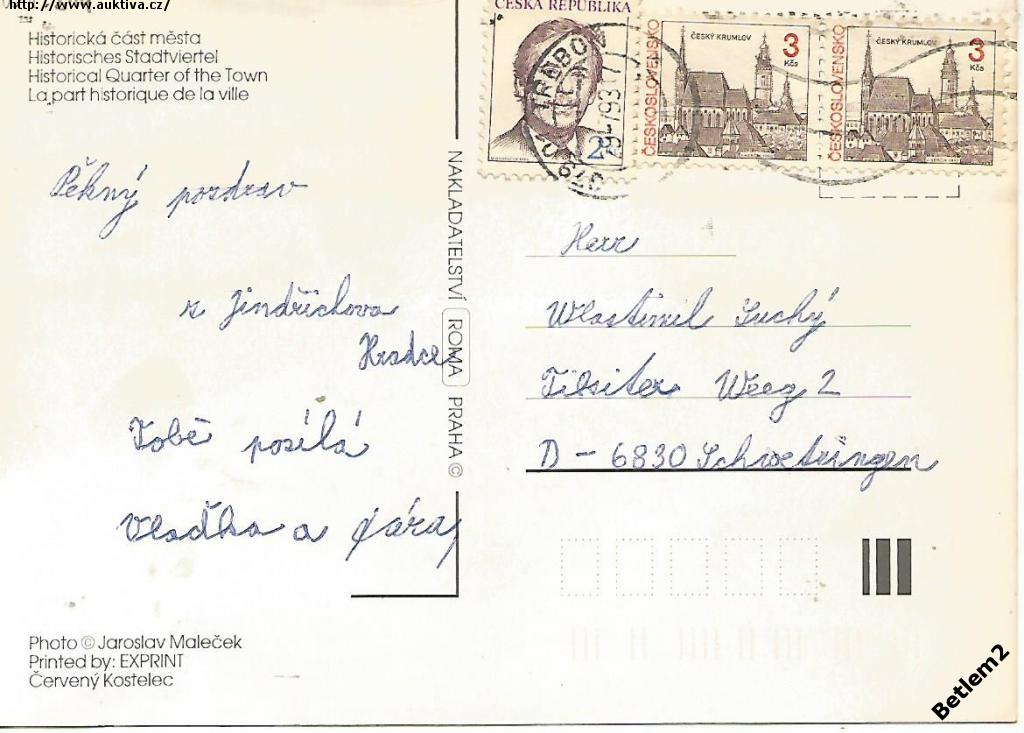 http://www.auktiva.cz/
Historická část města
Historisches Stadtviertel
Historical Quarter of the Town
La part historique de la ville
Pěkný pozdrav
z Jindřichova
Hradce
Tobě posílá
Vlaďka a Jára
Photo © Jaroslav Maleček
Printed by: EXPRINT
Červený Kostelec
NAKLADATELSTVÍ ROMA PRAHA ©
ČESKÁ REPUBLIKA
2
ČESKOSLOVENSKO
ČESKÝ KRUMLOV
3
Kčs
ČESKOSLOVENSKO
ČESKÝ KRUMLOV
3
Kčs
Herr
Wlastimil Suchý
Tilsiter Weeg 2
D - 6830 Schwetzingen
Betlem2